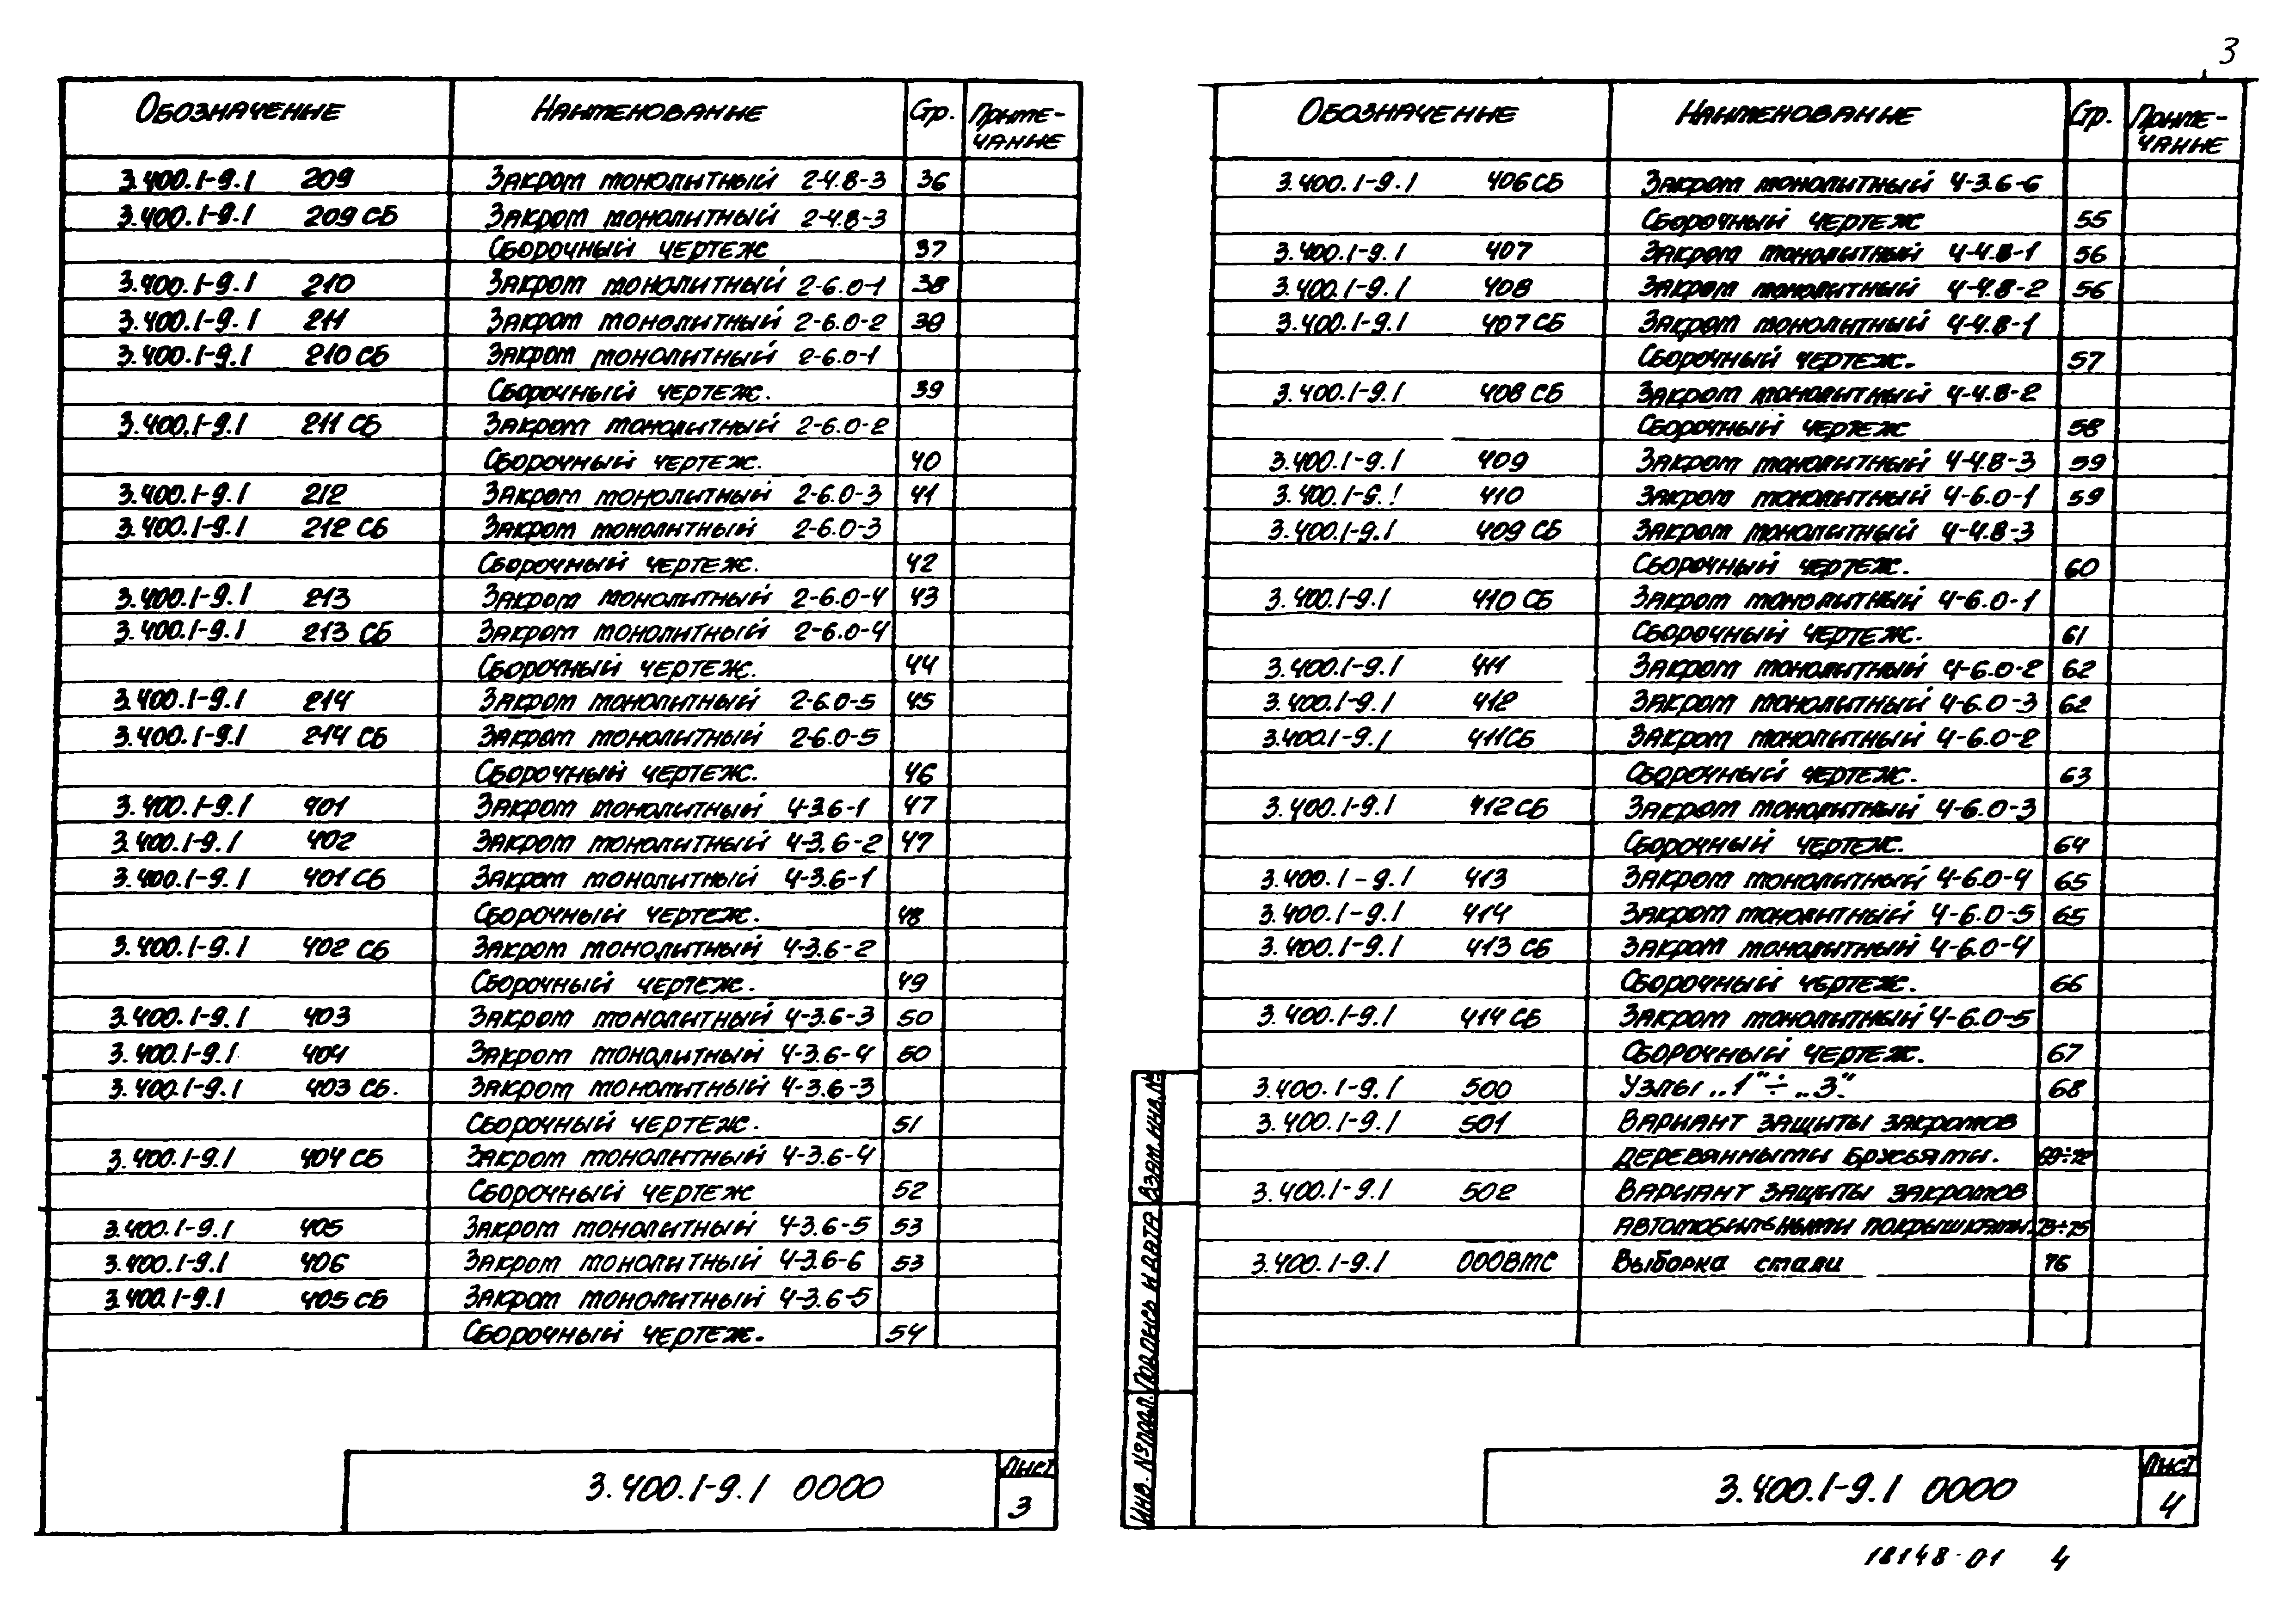 3
Обозначение Наименование Стр. Приме-
чание
3.400.1-9.1 209 Закром монолитный 2-4.8-3 36
3.400.1-9.1 209 СБ Закром монолитный 2-4.8-3
Сборочный чертеж 37
3.400.1-9.1 210 Закром монолитный 2-6.0-1 38
3.400.1-9.1 211 Закром монолитный 2-6.0-2 38
3.400.1-9.1 210 СБ Закром монолитный 2-6.0-1
Сборочный чертеж. 39
3.400.1-9.1 211 СБ Закром монолитный 2-6.0-2
Сборочный чертеж. 40
3.400.1-9.1 212 Закром монолитный 2-6.0-3 41
3.400.1-9.1 212 СБ Закром монолитный 2-6.0-3
Сборочный чертеж. 42
3.400.1-9.1 213 Закром монолитный 2-6.0-4 43
3.400.1-9.1 213 СБ Закром монолитный 2-6.0-4
Сборочный чертеж. 44
3.400.1-9.1 214 Закром монолитный 2-6.0-5 45
3.400.1-9.1 214 СБ Закром монолитный 2-6.0-5
Сборочный чертеж. 46
3.400.1-9.1 401 Закром монолитный 4-3.6-1 47
3.400.1-9.1 402 Закром монолитный 4-3.6-2 47
3.400.1-9.1 401 СБ Закром монолитный 4-3.6-1
Сборочный чертеж. 48
3.400.1-9.1 402 СБ Закром монолитный 4-3.6-2
Сборочный чертеж. 49
3.400.1-9.1 403 Закром монолитный 4-3.6-3 50
3.400.1-9.1 404 Закром монолитный 4-3.6-4 50
3.400.1-9.1 403 СБ. Закром монолитный 4-3.6-3
Сборочный чертеж. 51
3.400.1-9.1 404 СБ Закром монолитный 4-3.6-4
Сборочный чертеж 52
3.400.1-9.1 405 Закром монолитный 4-3.6-5 53
3.400.1-9.1 406 Закром монолитный 4-3.6-6 53
3.400.1-9.1 405 СБ Закром монолитный 4-3.6-5
Сборочный чертеж. 54
3.400.1-9.1 0000
Лист
3
Обозначение Наименование Стр. Приме-
чание
3.400.1-9.1 406 СБ Закром монолитный 4-3.6-6
Сборочный чертеж 55
3.400.1-9.1 407 Закром монолитный 4-4.8-1 56
3.400.1-9.1 408 Закром монолитный 4-4.8-2 56
3.400.1-9.1 407 СБ Закром монолитный 4-4.8-1
Сборочный чертеж. 57
3.400.1-9.1 408 СБ Закром монолитный 4-4.8-2
Сборочный чертеж 58
3.400.1-9.1 409 Закром монолитный 4-4.8-3 59
3.400.1-9.1 410 Закром монолитный 4-6.0-1 59
3.400.1-9.1 409 СБ Закром монолитный 4-4.8-3
Сборочный чертеж. 60
3.400.1-9.1 410 СБ Закром монолитный 4-6.0-1
Сборочный чертеж. 61
3.400.1-9.1 411 Закром монолитный 4-6.0-2 62
3.400.1-9.1 412 Закром монолитный 4-6.0-3 62
3.400.1-9.1 411 СБ Закром монолитный 4-6.0-2
Сборочный чертеж. 63
3.400.1-9.1 412 СБ Закром монолитный 4-6.0-3
Сборочный чертеж. 64
3.400.1-9.1 413 Закром монолитный 4-6.0-4 65
3.400.1-9.1 414 Закром монолитный 4-6.0-5 65
3.400.1-9.1 413 СБ Закром монолитный 4-6.0-4
Сборочный чертеж. 66
3.400.1-9.1 414 СБ Закром монолитный 4-6.0-5
Сборочный чертеж. 67
3.400.1-9.1 500 Узлы „1"÷„3". 68
3.400.1-9.1 501 Вариант защиты закромов
деревянными брусьями. 69÷72
3.400.1-9.1 502 Вариант защиты закромов
автомобильными покрышками. 73÷75
3.400.1-9.1 000ВМС Выборка стали 76
Инв. № подл. Подпись и дата Взам. инв. №
3.400.1-9.1 0000
Лист
4
18148-01 4